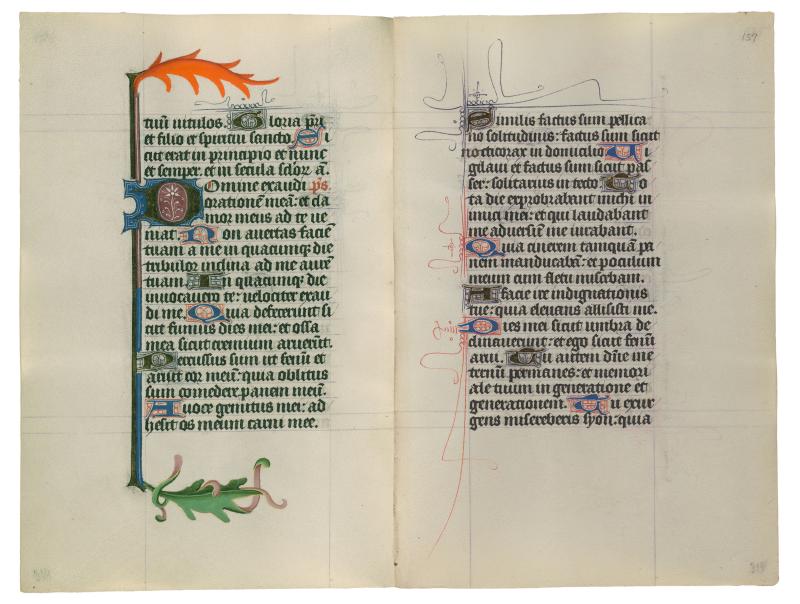 tuū uitulos. Gloria pr̄i
et filio et spiritui sancto. Si
cut erat in principio et nunc
et semper. et in secula sclor̄ a.̄
Domine exaudi ps̄.
orationē meā: et cla
mor meus ad te ve
niat. Non auertas faciē
tuam a me in quacumq; die
tribulor inclina ad me aurē
tuam. In quacumq; die
inuocauero te: uelociter exau
di me. Quia defecerunt si
cut fumus dies mei: et ossa
mea sicut cremium aruerūt.
Percussus sum ut fenū et
aruit cor meū: quia oblitus
sum comedere panem meū.
A uoce gemitus mei: ad
hesit os meum carni mee.
157
Similis factus sum pellica
no solitudinis: factus sum sicut
nocticorax in domicilio. Ui
gilaui et factus sum sicut pas
ser: solitarius in tecto. To
ta die exprobrabant michi in
imici mei: et qui laudabant
me aduersū me iurabant.
Quia cinerem tamquā pa
nem manducabā: et poculum
meum cum fletu miscebam.
A facie ire indignationis
tue: quia eleuans allisisti me.
Dies mei sicut umbra de
clinauerunt: et ego sicut fenū
arui. Tu autem dn̄e in e
ternū permanes: et memori
ale tuum in generatione et
generationem. Tu exur
gens misereberis syon: quia